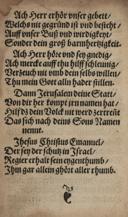 Ach Herr erhör vnser gebett/
Welchs nit gegründ ist vnd besteht/
Auff vnser Buß vnd wirdigkeyt/
Sonder dein groß barmhertzigkeit.
Ach Herr hör vnd sey gnedig/
Ach merck auff thu hilff schleunig/
Verzeuch nit vmb dein selbs willen/
Thu mein Gott alln hader stillen.
Dann Jerusalem deine Statt/
Von dir her kompt jrn namen hat/
Hilff dz dein Volck nit werd zertrent
Das sich nach deins Sons Namen
nennt.
Jhesus Christus Emanuel/
Der sey der schutz in Jsrael/
Regier erhalt sein eygenthumb/
Jhm gar allein ghört aller rhumb.